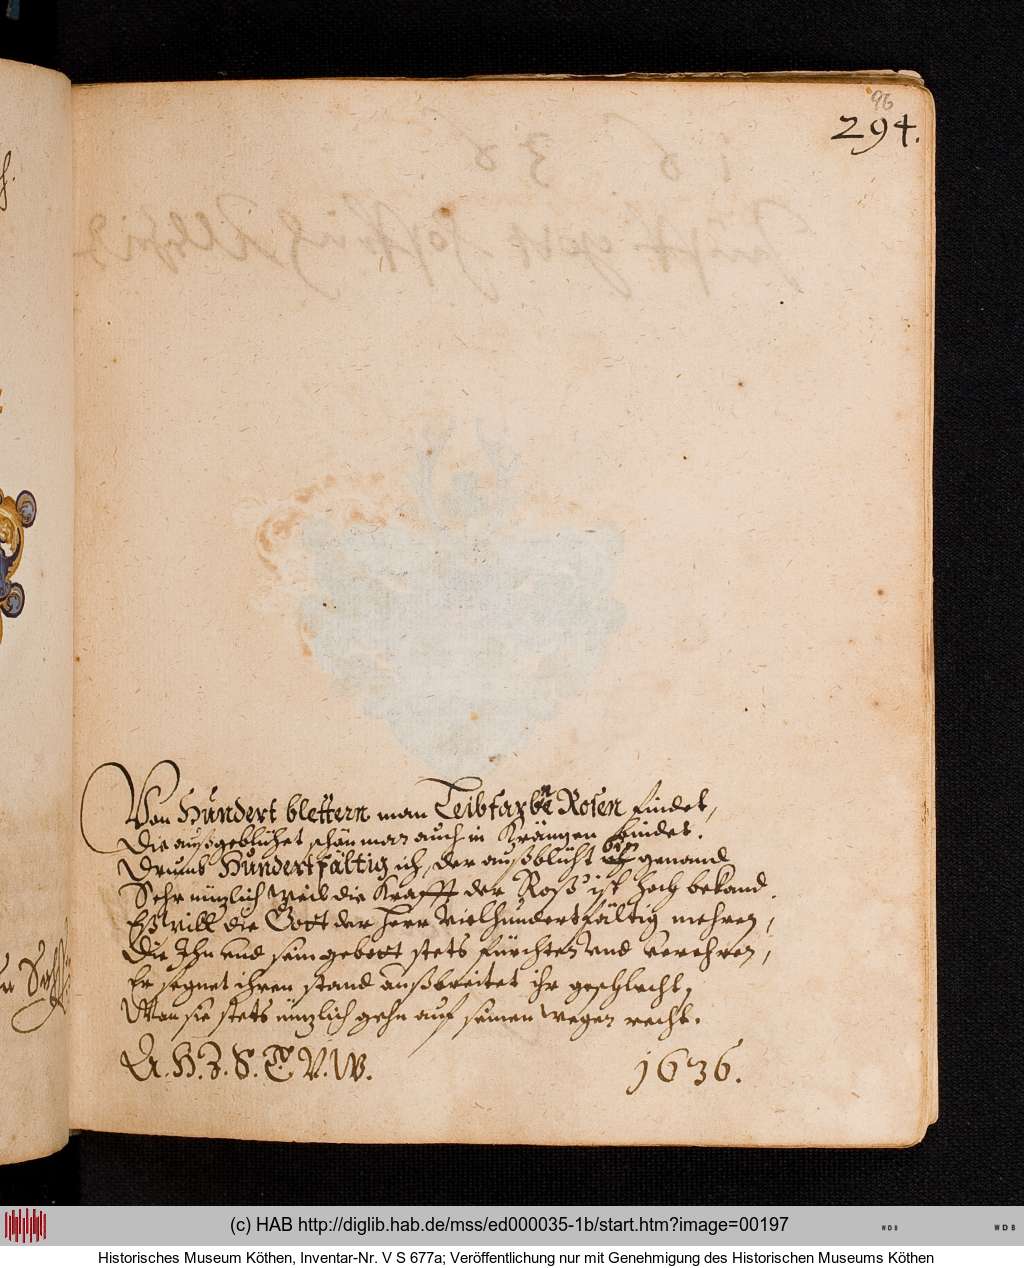 96
294.
Von Hundert blettern man Leibfarbne Rosen findet,
Die außgeblühet schön man auch in Kräntzen bindet.
Drumb Hundertfältig ich, der außblüht bin genand
Sehr nützlich weil die Krafft der Roß ist hoch bekand.
Eß will die Gott der Herr vielhundertfältig mehren,
Die Ihn und sein gebott stets fürchten und verehren,
Er segnet ihren stand außbreitet ihr geschlecht,
Wan sie stets nützlich gehn auf seinen wegen recht.
A. H. Z. S. T. V. W. 1636.
(c) HAB http://diglib.hab.de/mss/ed000035-1b/start.htm?image=00197
WDB
WDB
Historisches Museum Köthen, Inventar-Nr. V S 677a; Veröffentlichung nur mit Genehmigung des Historischen Museums Köthen